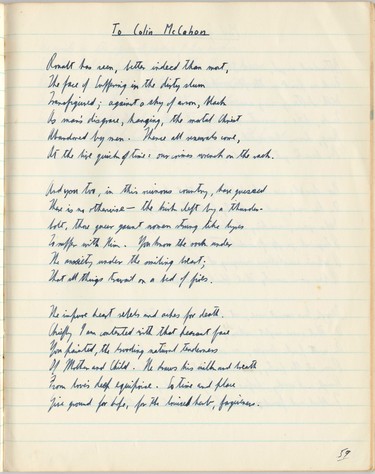 To Colin McCahon
Rouault has seen, better indeed than most,
The face of Suffering in the dirty slum
Transfigured; against a sky of iron, black
As man's disgrace, hanging, the mortal Christ
Abandoned by men. Thence all renewals come,
At the live quick of time: our vines wrench on the rock.
And you too, in this ruinous country, have guessed
There is no otherwise — the bush cleft by a thunder-
bolt, those gaunt women strung like lyres
To suffer with Him. You know the rock under
The anxiety under the smiling breast;
That all things travail on a bed of fires.
The impure heart rebels and aches for death.
Chiefly I am contented with that peasant face
You painted, the brooding natural tenderness
Of Mother and Child. He draws his milk and breath
From love's deep equipoise. So time and place
Give ground for hope, for the bruised herb, forgiveness.
59